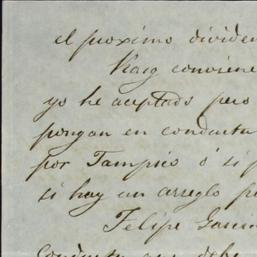 el proximo dividen
Kaig conviene
yo he aceptado pero
pongan en conducta
por Tampico ó si p
si hay un arreglo p
Felipe Garcia
Conducta que debe